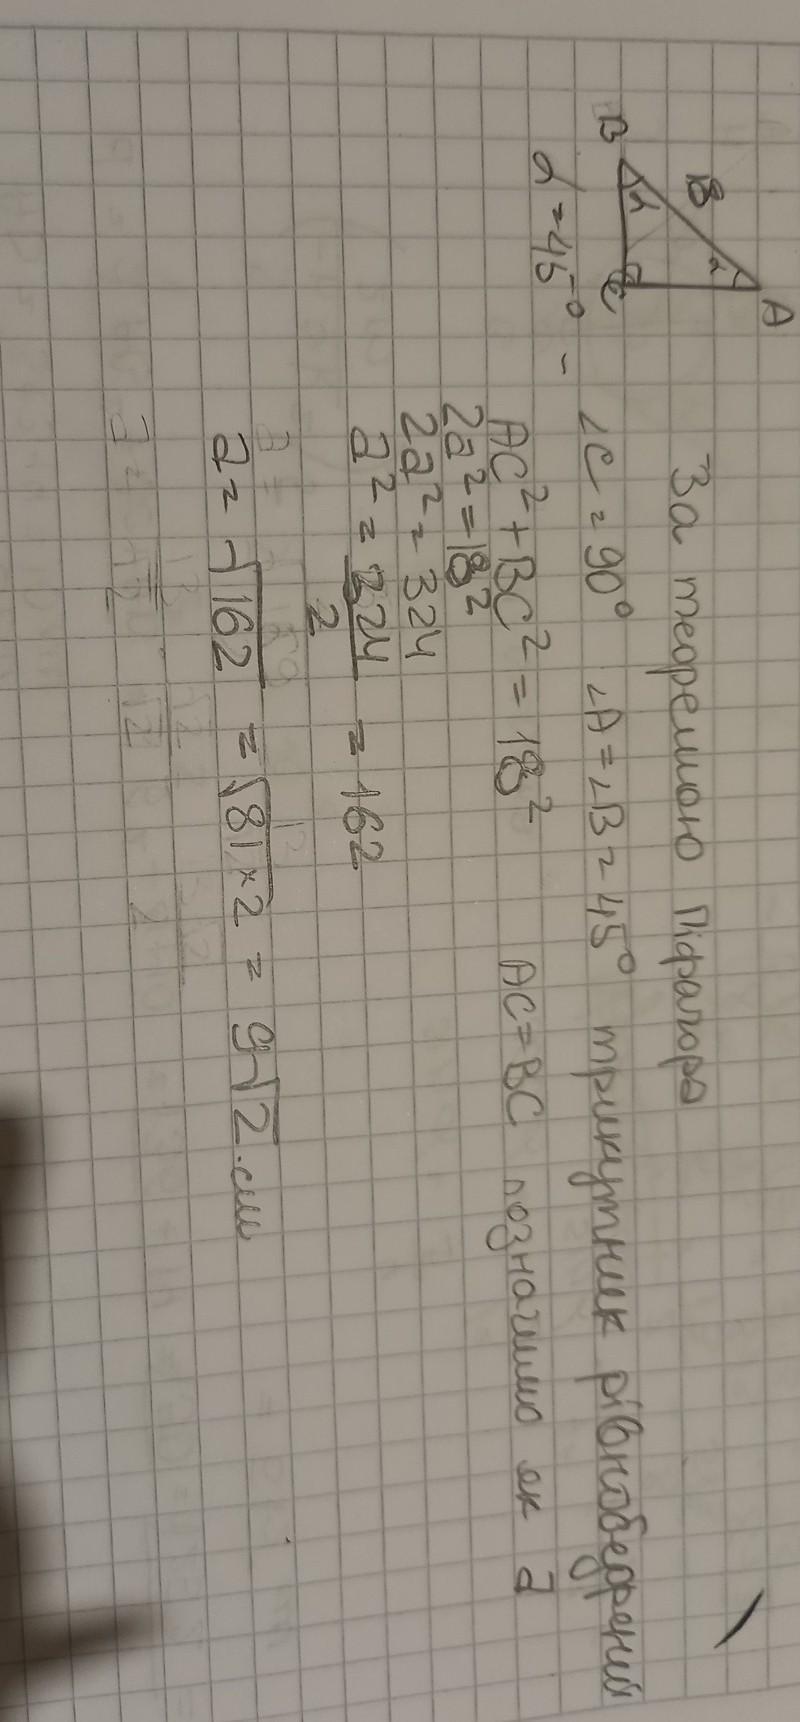 За теоремою Піфагора
A
18
α
α
B
C
∠C = 90° ∠A = ∠B = 45° трикутник рівнобедрений
α = 45° -
AC² + BC² = 18² AC = BC позначимо як a
2a² = 18²
2a² = 324
a² = 324/2 = 162
a = √162 = √81×2 = 9√2 см